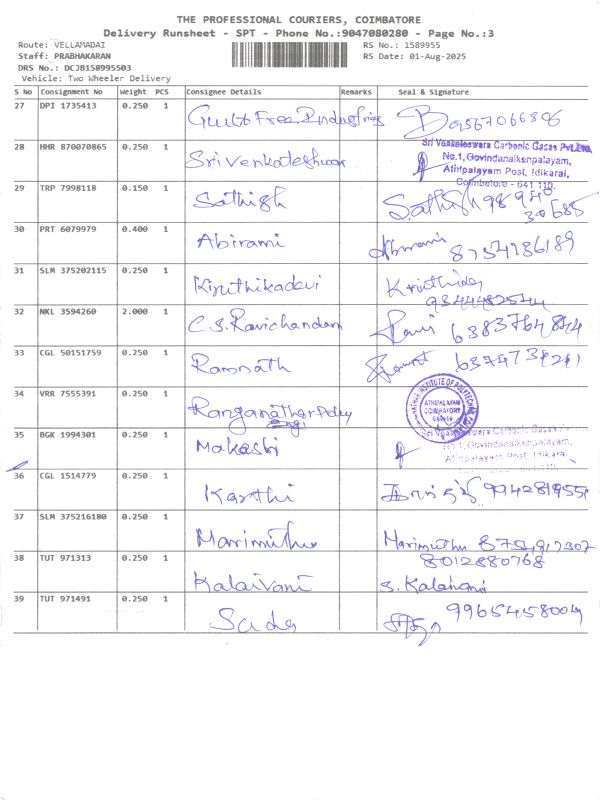 THE PROFESSIONAL COURIERS, COIMBATORE
Delivery Runsheet - SPT - Phone No.:9047080280 - Page No.:3
Route: VELLAMADAI RS No.: 1589955
Staff: PRABHAKARAN RS Date: 01-Aug-2025
DRS No.: DCJB158995503
Vehicle: Two Wheeler Delivery
S No Consignment No Weight PCS Consignee Details Remarks Seal & Signature
27 DPI 1735413 0.250 1 Free Industries 9567066896
28 HHR 870070865 0.250 1 Sri Venkateshwar
Sri Venkateleswara Carbonic Gases Pvt.Ltd.,
No,1,Govindanaikenpalayam,
Athipalayam Post, Idikarai,
Coimbatore - 641 110.
29 TRP 7998118 0.150 1 Sathish Sathish
30 PRT 6079979 0.400 1 Abirami Abirami 8754786189
31 SLM 375202115 0.250 1 Kiruthikadevi
9344482544
32 NKL 3594260 2.000 1 C.S. Ravichandran Ravi 6383764844
33 CGL 50151759 0.250 1 Ramnath
34 VRR 7555391 0.250 1 Ranganathar Poley
ATHIPALAYAM
COIMBATORE
35 BGK 1994301 0.250 1
Carbonic Gases
No,1,Govindanaikenpalayam,
Athipalayam Post, Idikarai,
36 CGL 1514779 0.250 1 Karthi
37 SLM 375216180 0.250 1 Marimuthu Marimuthu 8754917307
38 TUT 971313 0.250 1 Kalaivani 8012880768
S. Kalaivani
39 TUT 971491 0.250 1 9965458004